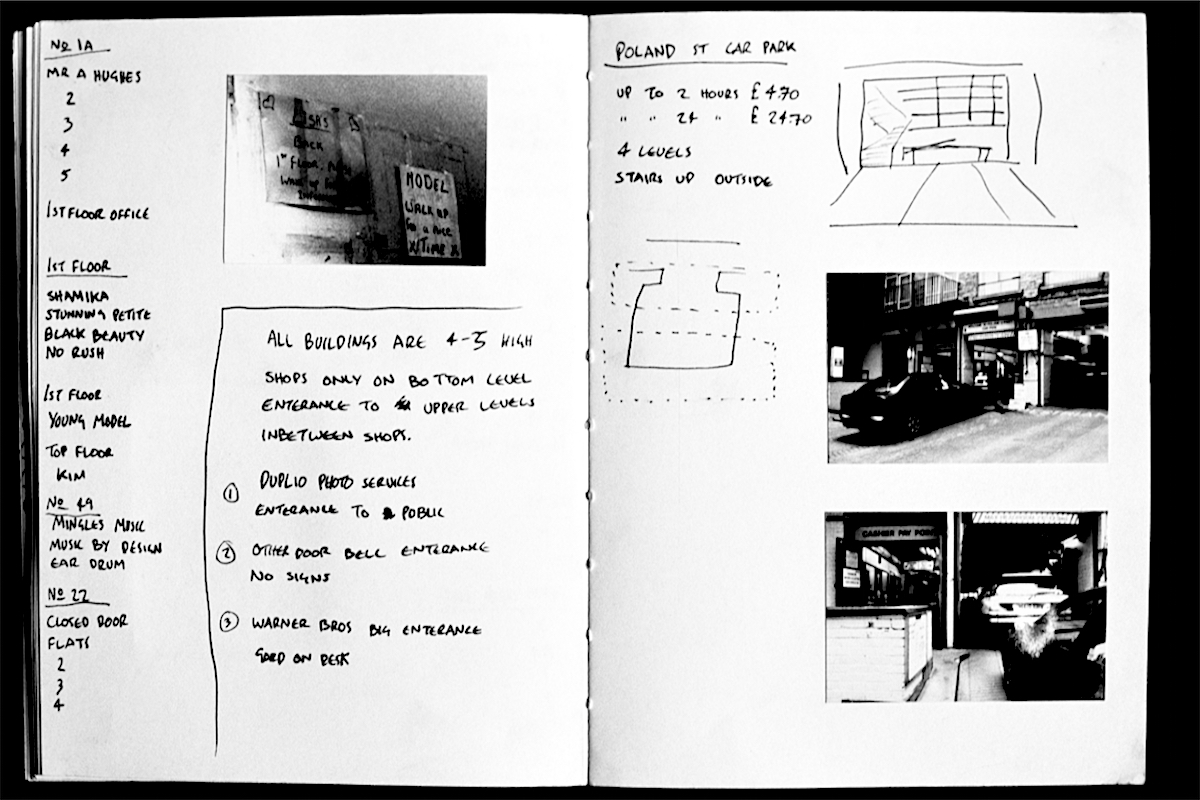 No 1A
MR A HUGHES
2
3
4
5
1ST FLOOR OFFICE
1ST FLOOR
SHAMIKA
STUNNING PETITE
BLACK BEAUTY
NO RUSH
1ST FLOOR
YOUNG MODEL
TOP FLOOR
KIM
No 49
MINGLES MUSIC
MUSIC BY DESIGN
EAR DRUM
No 22
CLOSED DOOR
FLATS
2
3
4
BACK
1ST FLOOR
WALK UP
MODEL
WALK UP
FOR A NICE
TIME
ALL BUILDINGS ARE 4-5 HIGH
SHOPS ONLY ON BOTTOM LEVEL
ENTERANCE TO UPPER LEVELS
INBETWEEN SHOPS.
1 DUPLIO PHOTO SERVICES
ENTERANCE TO PUBLIC
2 OTHER DOOR BELL ENTERANCE
NO SIGNS
3 WARNER BROS BIG ENTERANCE
GARD ON DESK
POLAND ST CAR PARK
UP TO 2 HOURS £4.70
" " 24 " £24.70
4 LEVELS
STAIRS UP OUTSIDE
CASHIER PAY